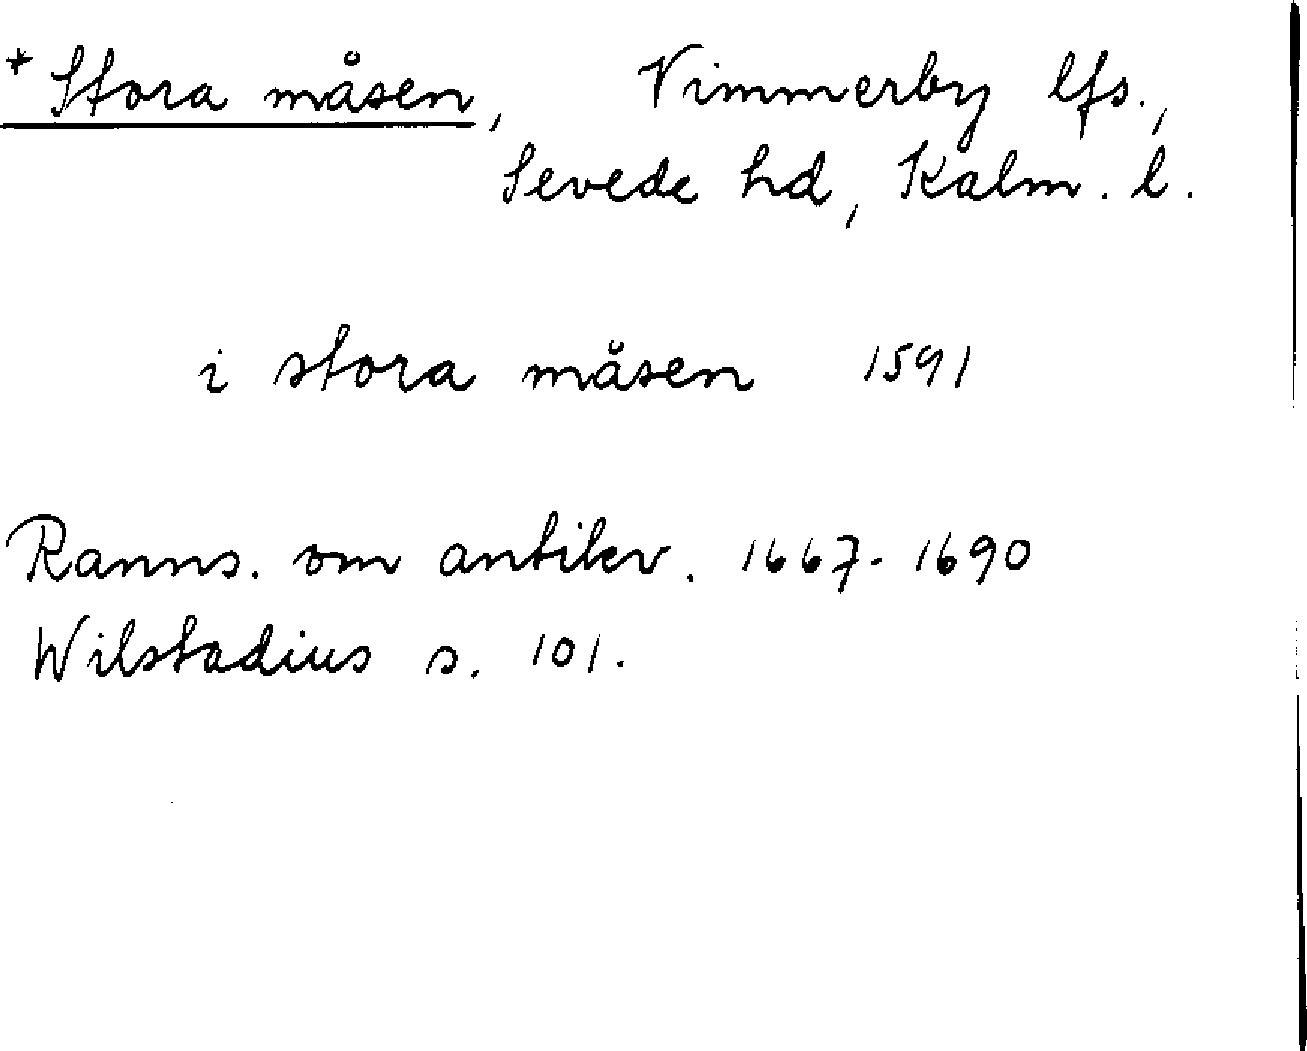 + Stora måsen, Vimmerby lfs.,
Sevede hd, Kalm. l.
i stora måsen 1591
Ranns. om antikv. 1667-1690
Wilstadius s. 101.